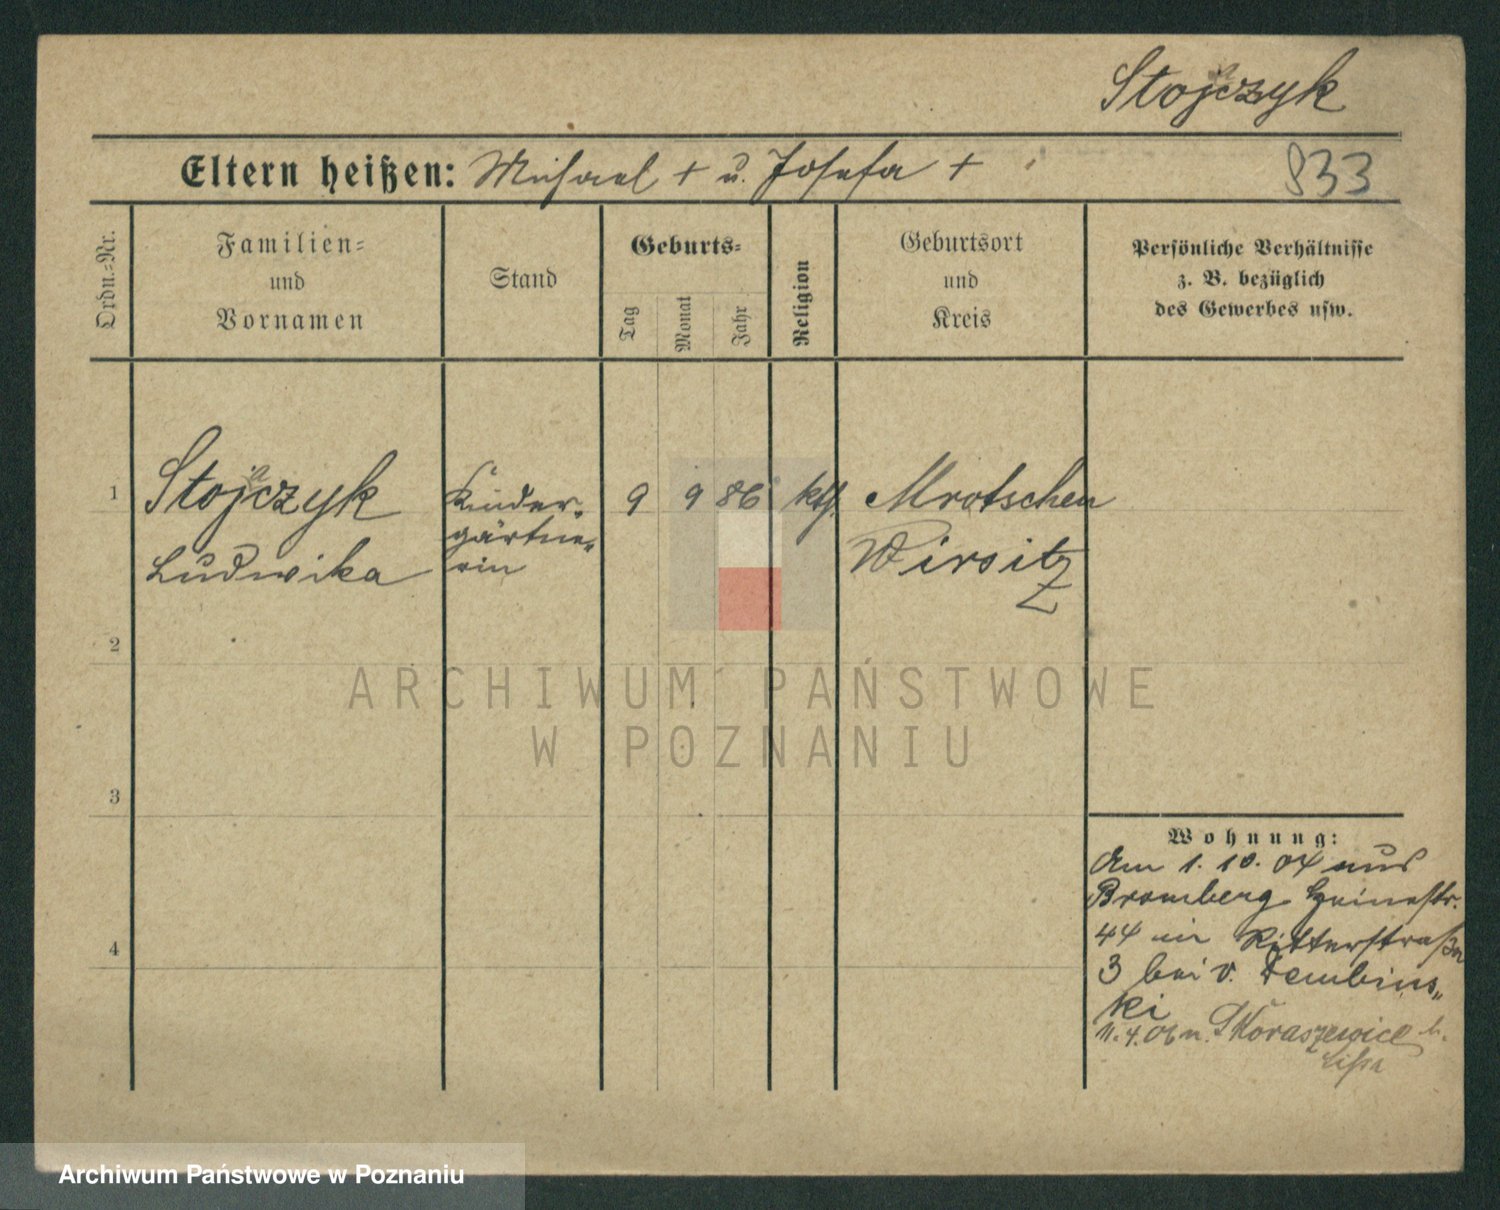 Stojczyk
Eltern heißen: Michael + u. Josefa +
833
Ordn.=Nr.
Familien=
und
Vornamen
Stand
Geburts=
Tag
Monat
Jahr
Religion
Geburtsort
und
Kreis
Persönliche Verhältnisse
z. B. bezüglich
des Gewerbes usw.
1
Stojczyk
Ludwika
Kinder-
gärtne-
rin
9 9 86 kth.
Mrotschen
Wirsitz
2
3
4
Wohnung:
Am 1. 10. 04 aus
Bromberg Heinestr.
44 in Ritterstraße
3 bei v. Dembins-
ki
11.4.06 n. Skoraszewice b.
Lissa
ARCHIWUM PAŃSTWOWE
W POZNANIU
Archiwum Państwowe w Poznaniu